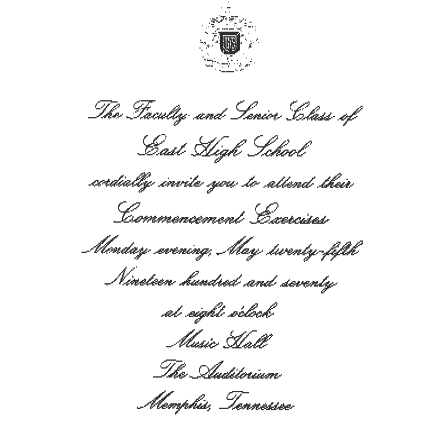 The Faculty and Senior Class of
East High School
cordially invite you to attend their
Commencement Exercises
Monday evening, May twenty-fifth
Nineteen hundred and seventy
at eight o'clock
Music Hall
The Auditorium
Memphis, Tennessee